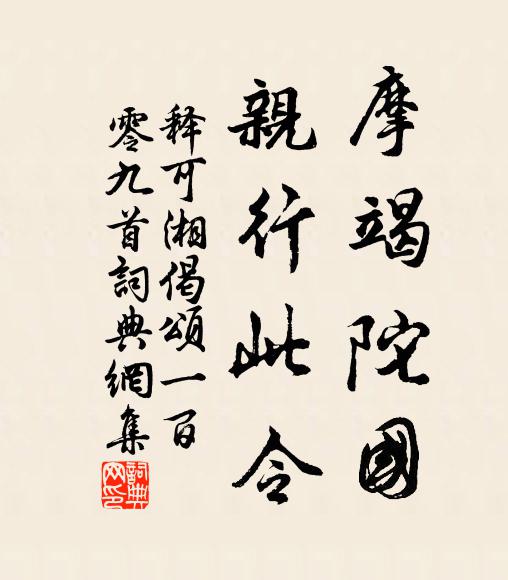 摩竭陀國
親行此令
釋可湘偈頌一百
零九首詞典網集
詞典
网印